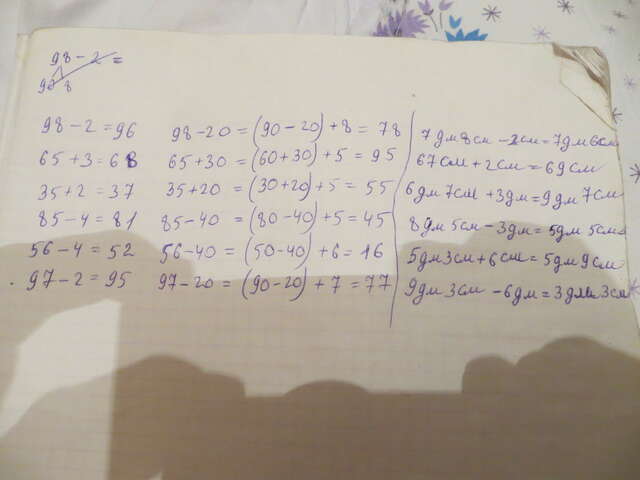 98 - 2 =
90 8
98 - 2 = 96
65 + 3 = 68
35 + 2 = 37
85 - 4 = 81
56 - 4 = 52
97 - 2 = 95
98 - 20 = (90 - 20) + 8 = 78
65 + 30 = (60 + 30) + 5 = 95
35 + 20 = (30 + 20) + 5 = 55
85 - 40 = (80 - 40) + 5 = 45
56 - 40 = (50 - 40) + 6 = 16
97 - 20 = (90 - 20) + 7 = 77
7 дм 8 см - 2 см = 7 дм 6 см
67 см + 2 см = 69 см
6 дм 7 см + 3 дм = 9 дм 7 см
8 дм 5 см - 3 дм = 5 дм 5 см
5 дм 3 см + 6 см = 5 дм 9 см
9 дм 3 см - 6 дм = 3 дм 3 см